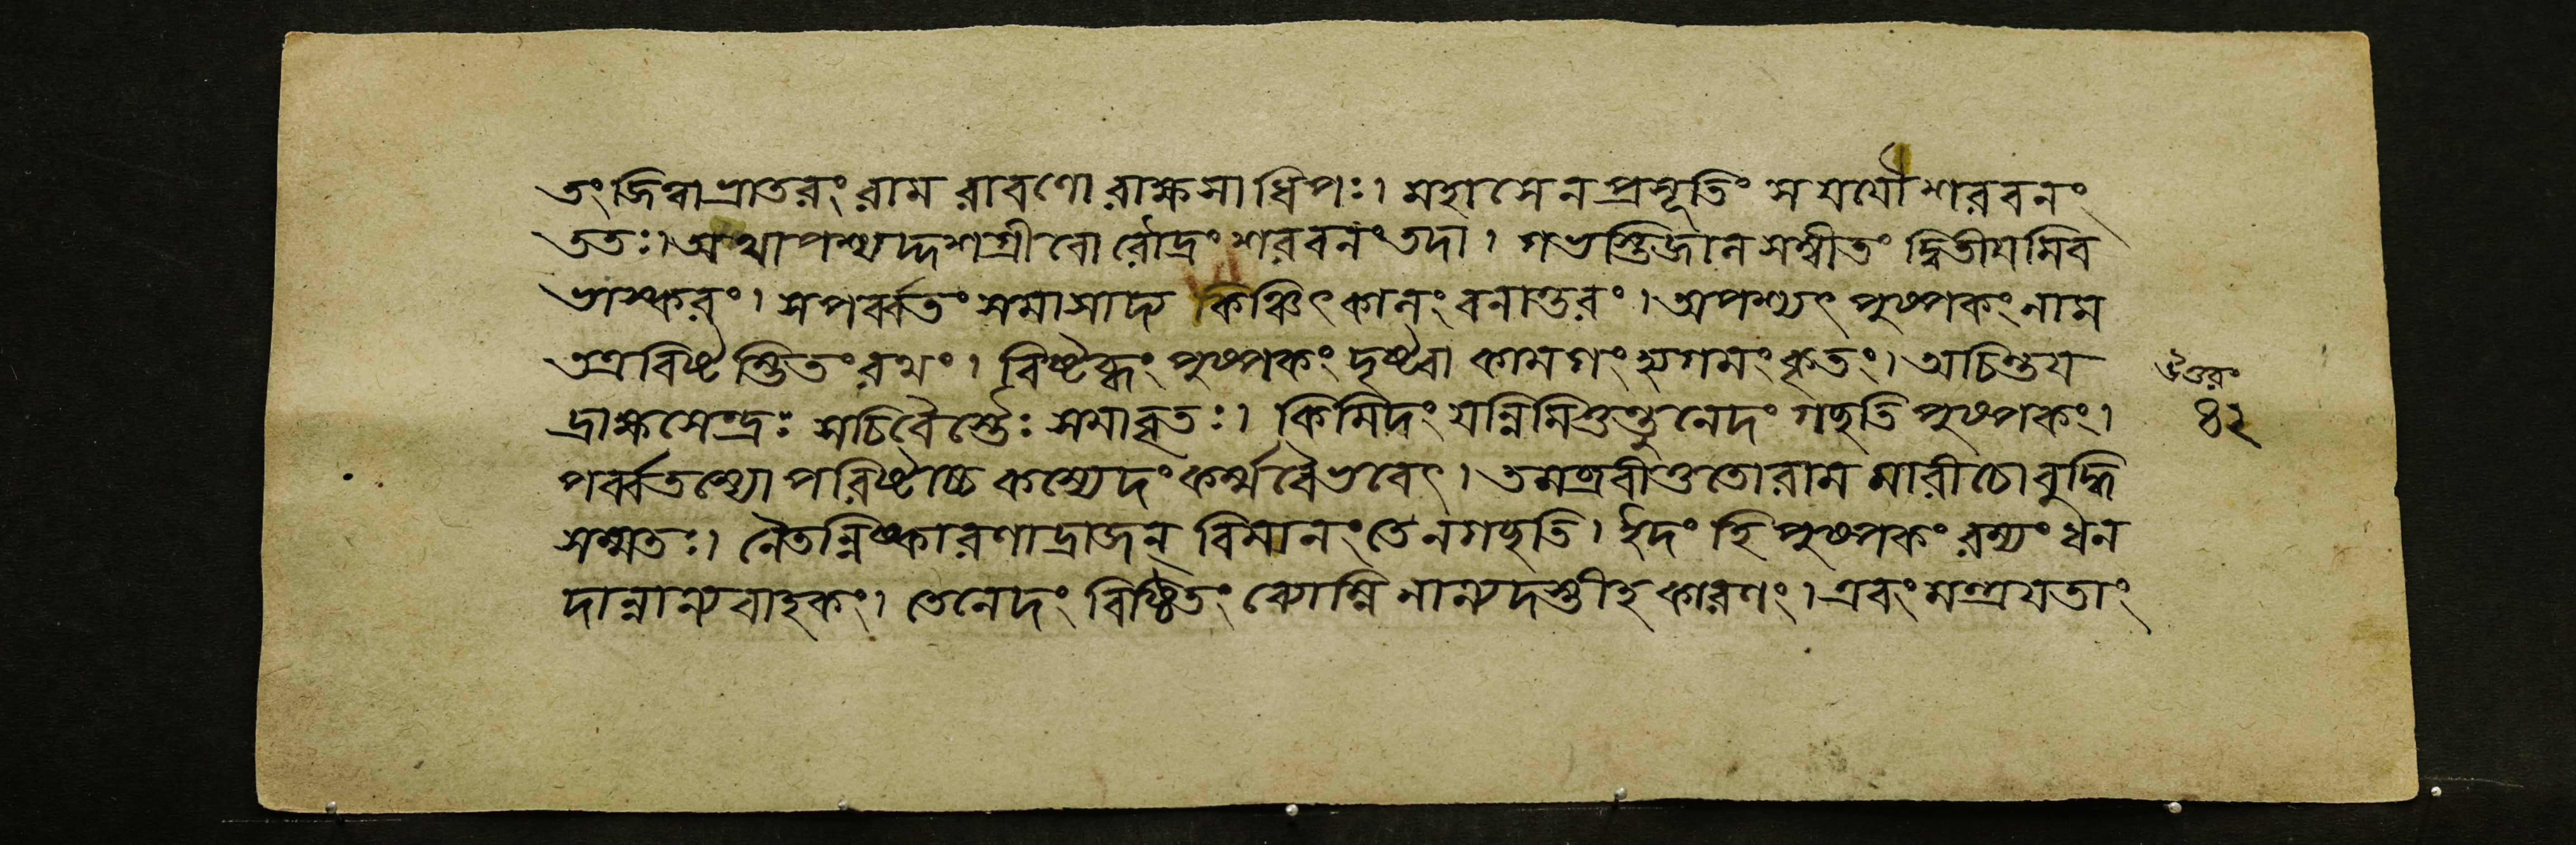 তং জিত্বা ভ্রাতরং রাম রাবণো রাক্ষসাধিপঃ। মহাসেনপ্রসূতিং স যযৌ শরবনং
ততঃ। অথাপশ্যদ্দশগ্রীবো রৌদ্রং শরবনং তদা। গভস্তিজালসম্বীতং দ্বিতীয়মিব
ভাস্করং। স পর্ব্বতং সমাসাদ্য কিঞ্চিৎ কানং বনান্তরং। অপশ্যৎ পুষ্পকং নাম
তত্র বিষ্টম্ভিতং রথং। বিষ্টব্ধং পুষ্পকং দৃষ্ট্বা কামগং সুগমং কৃতং। অচিন্তয
দ্রাক্ষসেন্দ্রঃ সচিবৈস্তৈঃ সমাবৃতঃ। কিমিদং যন্নিমিত্তন্তু নেদং গচ্ছতি পুষ্পকং।
পর্ব্বতস্যোপরিষ্টাচ্চ কস্যেদং কর্ম্ম বৈ ভবেৎ। তমব্রবীত্ততো রাম মারীচো বুদ্ধি
সম্মতঃ। নৈতন্নিষ্কারণাদ্রাজন্ বিমানং তে ন গচ্ছতি। ইদং হি পুষ্পকং রম্যং ধন
দান্নান্যবাহকং। তেনেদং বিষ্ঠিতং ব্যোম্নি নান্যদস্তীহ কারণং। এবং মন্ত্রয়তাং
উত্তরং
৪২